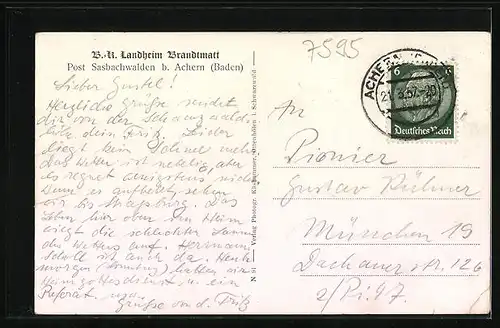 B.-K. Landheim Brandtmatt
Post Sasbachwalden b. Achern (Baden)
7595
Lieber Gustel!
Herzliche Grüße sendet
dir von der Schwarzwald-
höhe dein Fritz. Leider
liegt kein Schnee mehr.
Das Wetter ist nebelig, aber
es regnet wenigstens nicht.
Wenn es aufhellt, sehen
wir bis Straßburg. Das
Leben hier oben im Heim
wiegt die schlechte
des Wetters auf. Hermann
ist auch da. Heute
morgen (Sonntag) hatten wir
Heimgottesdienst u. ein
Referat
Grüße von d. Fritz
N 91 — Verlag Photogr. Ottenhöfen i. Schwarzwald
ACHERN
6
Deutsches Reich
An
Pionier
Gustav Rühmer
München 19
Dachauerstr. 126
2/Pi. 47.